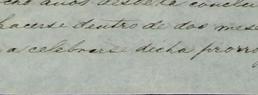 años desde la conclu
hacerse dentro de dos mese
a celebrarse dicha prorro